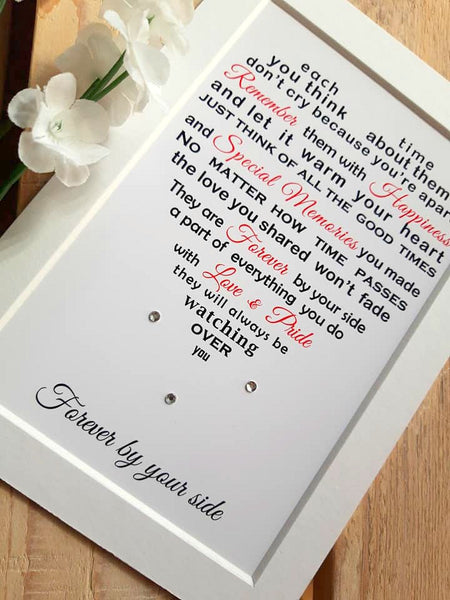 each time
you think about them
don't cry because you're apart
Remember them with Happiness
and let it warm your heart
JUST THINK OF ALL THE GOOD TIMES
and Special Memories you made
NO MATTER HOW TIME PASSES
the love you shared won't fade
They are Forever by your side
a part of everything you do
with Love & Pride
they will always be
watching
OVER
you
Forever by your side